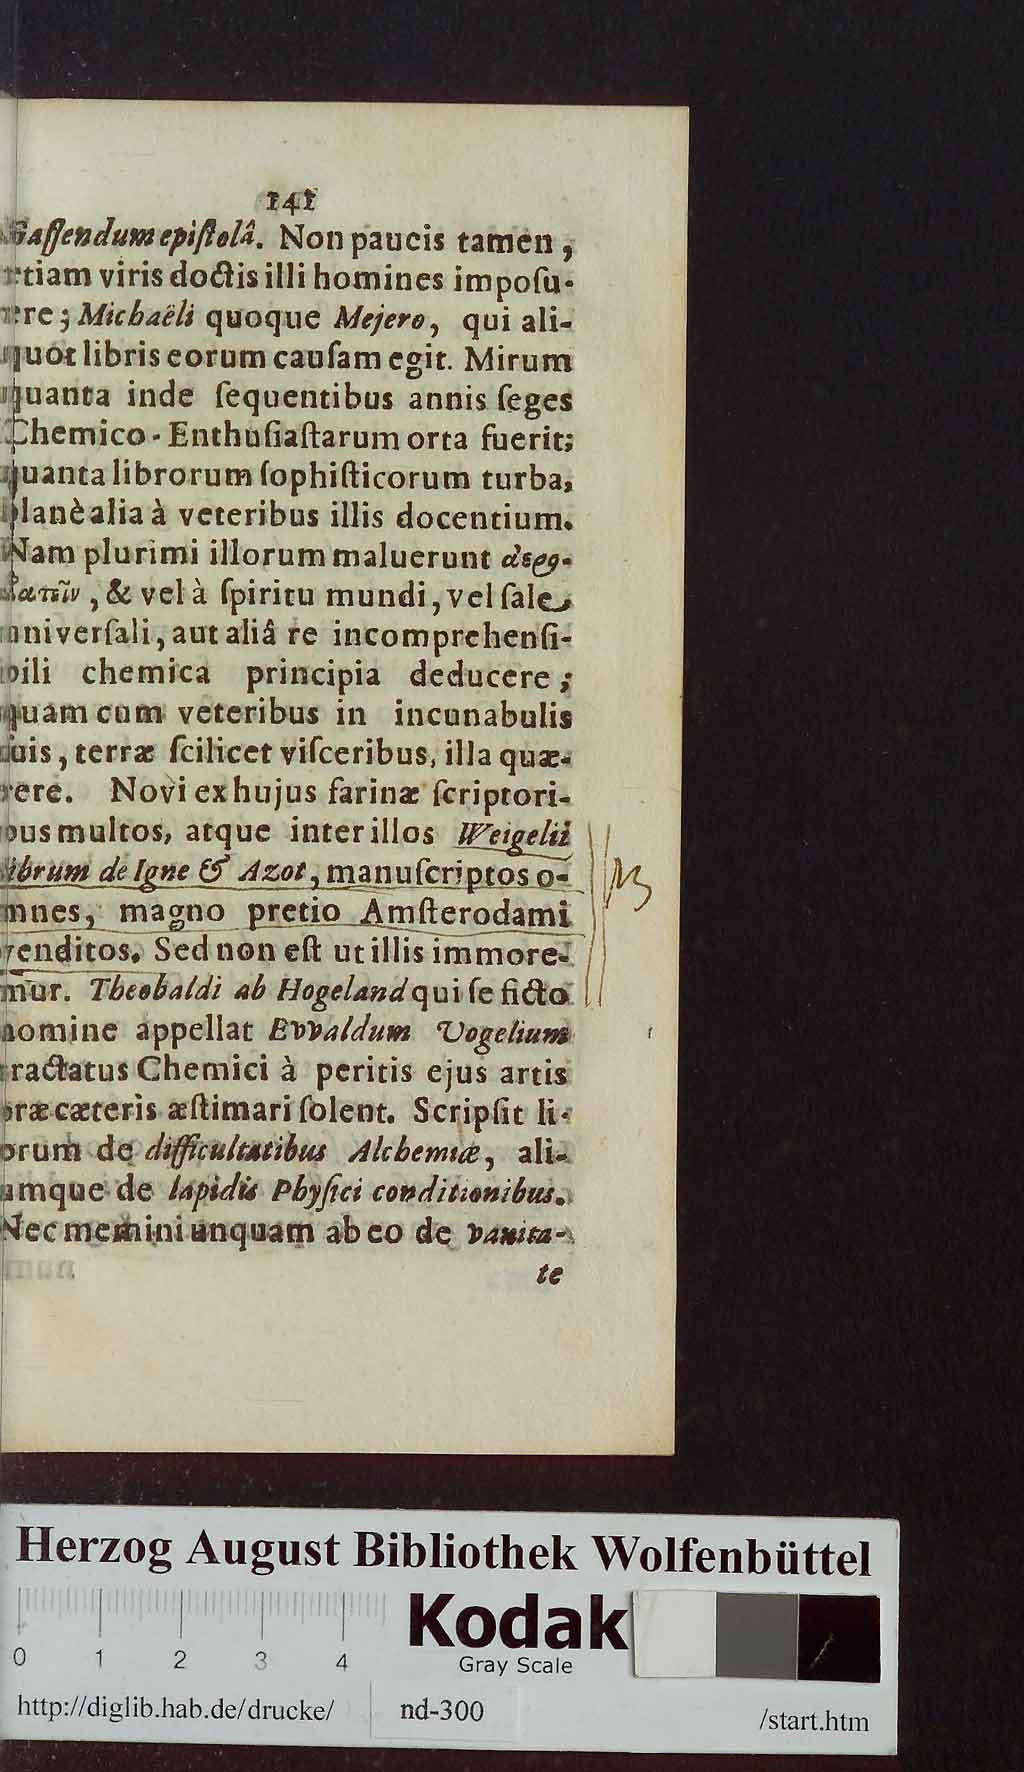 141
Gaſſendum epiſtolâ. Non paucis tamen,
etiam viris doctis illi homines impoſu-
ere; Michaëli quoque Mejero, qui ali-
quot libris eorum cauſam egit. Mirum
quanta inde ſequentibus annis ſeges
Chemico-Enthuſiaſtarum orta fuerit;
quanta librorum ſophiſticorum turba,
planè alia à veteribus illis docentium.
Nam plurimi illorum maluerunt
& vel à ſpiritu mundi, vel ſale
univerſali, aut aliâ re incomprehenſi-
bili chemica principia deducere;
quam cum veteribus in incunabulis
ſuis, terræ ſcilicet viſceribus, illa quæ-
rere. Novi ex hujus farinæ ſcriptori-
bus multos, atque inter illos Weigelii
librum de Igne & Azot, manuſcriptos o-
mnes, magno pretio Amſterodami
venditos. Sed non eſt ut illis immore-
mur. Theobaldi ab Hogeland qui ſe ficto
nomine appellat Evvaldum Vogelium
tractatus Chemici à peritis ejus artis
præ cæteris æſtimari ſolent. Scripſit li-
brum de difficultatibus Alchemiæ, ali-
umque de lapidis Phyſici conditionibus.
Nec memini unquam ab eo de vanita-
te
Herzog August Bibliothek Wolfenbüttel
Kodak
Gray Scale
0 1 2 3 4
http://diglib.hab.de/drucke/ nd-300 /start.htm